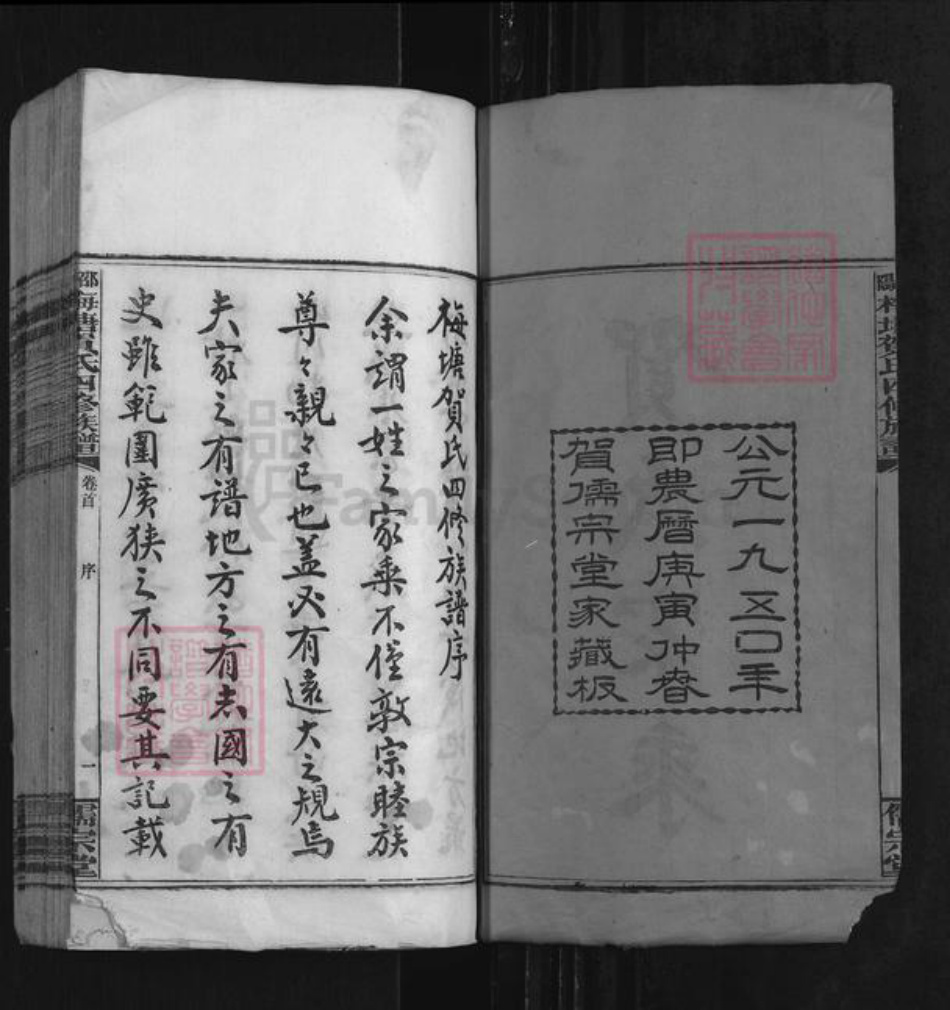 公元一九五〇年
即農曆庚寅仲春
賀儒宗堂家藏板
梅塘賀氏四修族譜序
余謂一姓之家乘不僅敦宗睦族
尊々親々已也盖必有遠大之規焉
夫家之有譜地方之有志國之有
史雖範圍廣狹之不同要其記載
梅塘賀氏四修族譜
卷首
序
一
儒宗堂